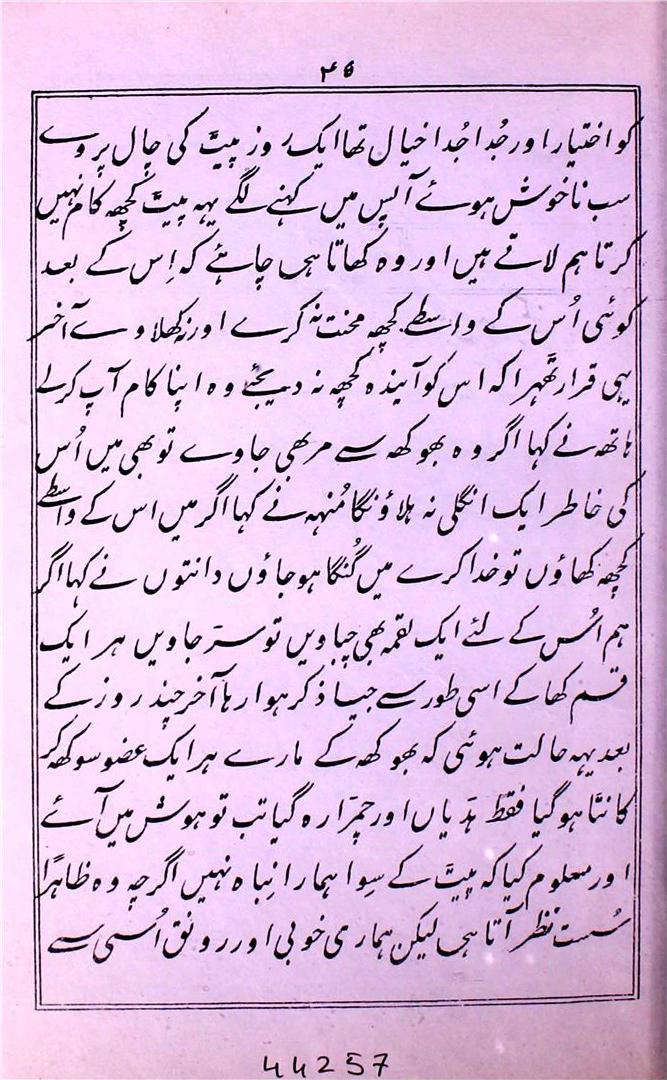 ۴۵
کو اختیار اور جُدا جُدا خیال تھا ایک روز پیٹ کی چال پر وے
سب ناخوش ہوئے آپس میں کہنے لگے یہہ پیٹ کچھ کام نہیں
کرتا ہم لاتے ہیں اور وہ کھاتا ہی چاہئے کہ اِس کے بعد
کوئی اُس کے واسطے کچھ محنت نہ کرے اور نہ کھلاوے آخر
یہی قرار ٹھہرا کہ اس کو آیندہ کچھ نہ دیجئے وہ اپنا کام آپ کرلے
ہاتھ نے کہا اگر وہ بھوکھ سے مر بھی جاوے تو بھی میں اُس
کی خاطر ایک انگلی نہ ہلاؤنگا مُنہہ نے کہا اگر میں اس کے واسطے
کچھ کھاؤں تو خدا کرے میں گُنگا ہو جاؤں دانتوں نے کہا اگر
ہم اُس کے لئے ایک لقمہ بھی چباویں تو سڑ جاویں ہر ایک
قسم کھا کے اسی طور سے جیسا ذکر ہوا رہا آخر چند روز کے
بعد یہہ حالت ہوئی کہ بھوکھ کے مارے ہر ایک عضو سوکھ کر
کانٹا ہو گیا فقط ہڈیاں اور چمڑا رہ گیا تب تو ہوش میں آئے
اور معلوم کیا کہ پیٹ کے سِوا ہمارا نِباہ نہیں اگرچہ وہ ظاہرًا
سُست نظر آتا ہی لیکن ہماری خوبی اور رونق اُسی سے
44257